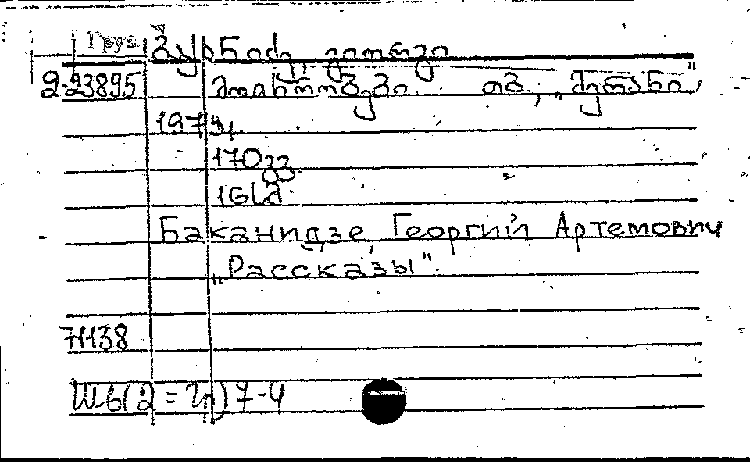 Груз
ბაქანიძე, გიორგი
2-23895 მოთხრობები. თბ., „მერანი",
1974
170 გვ.
Баканидзе, Георгий Артемович
„Рассказы".
71138
Ш6(2=Гр)7-4